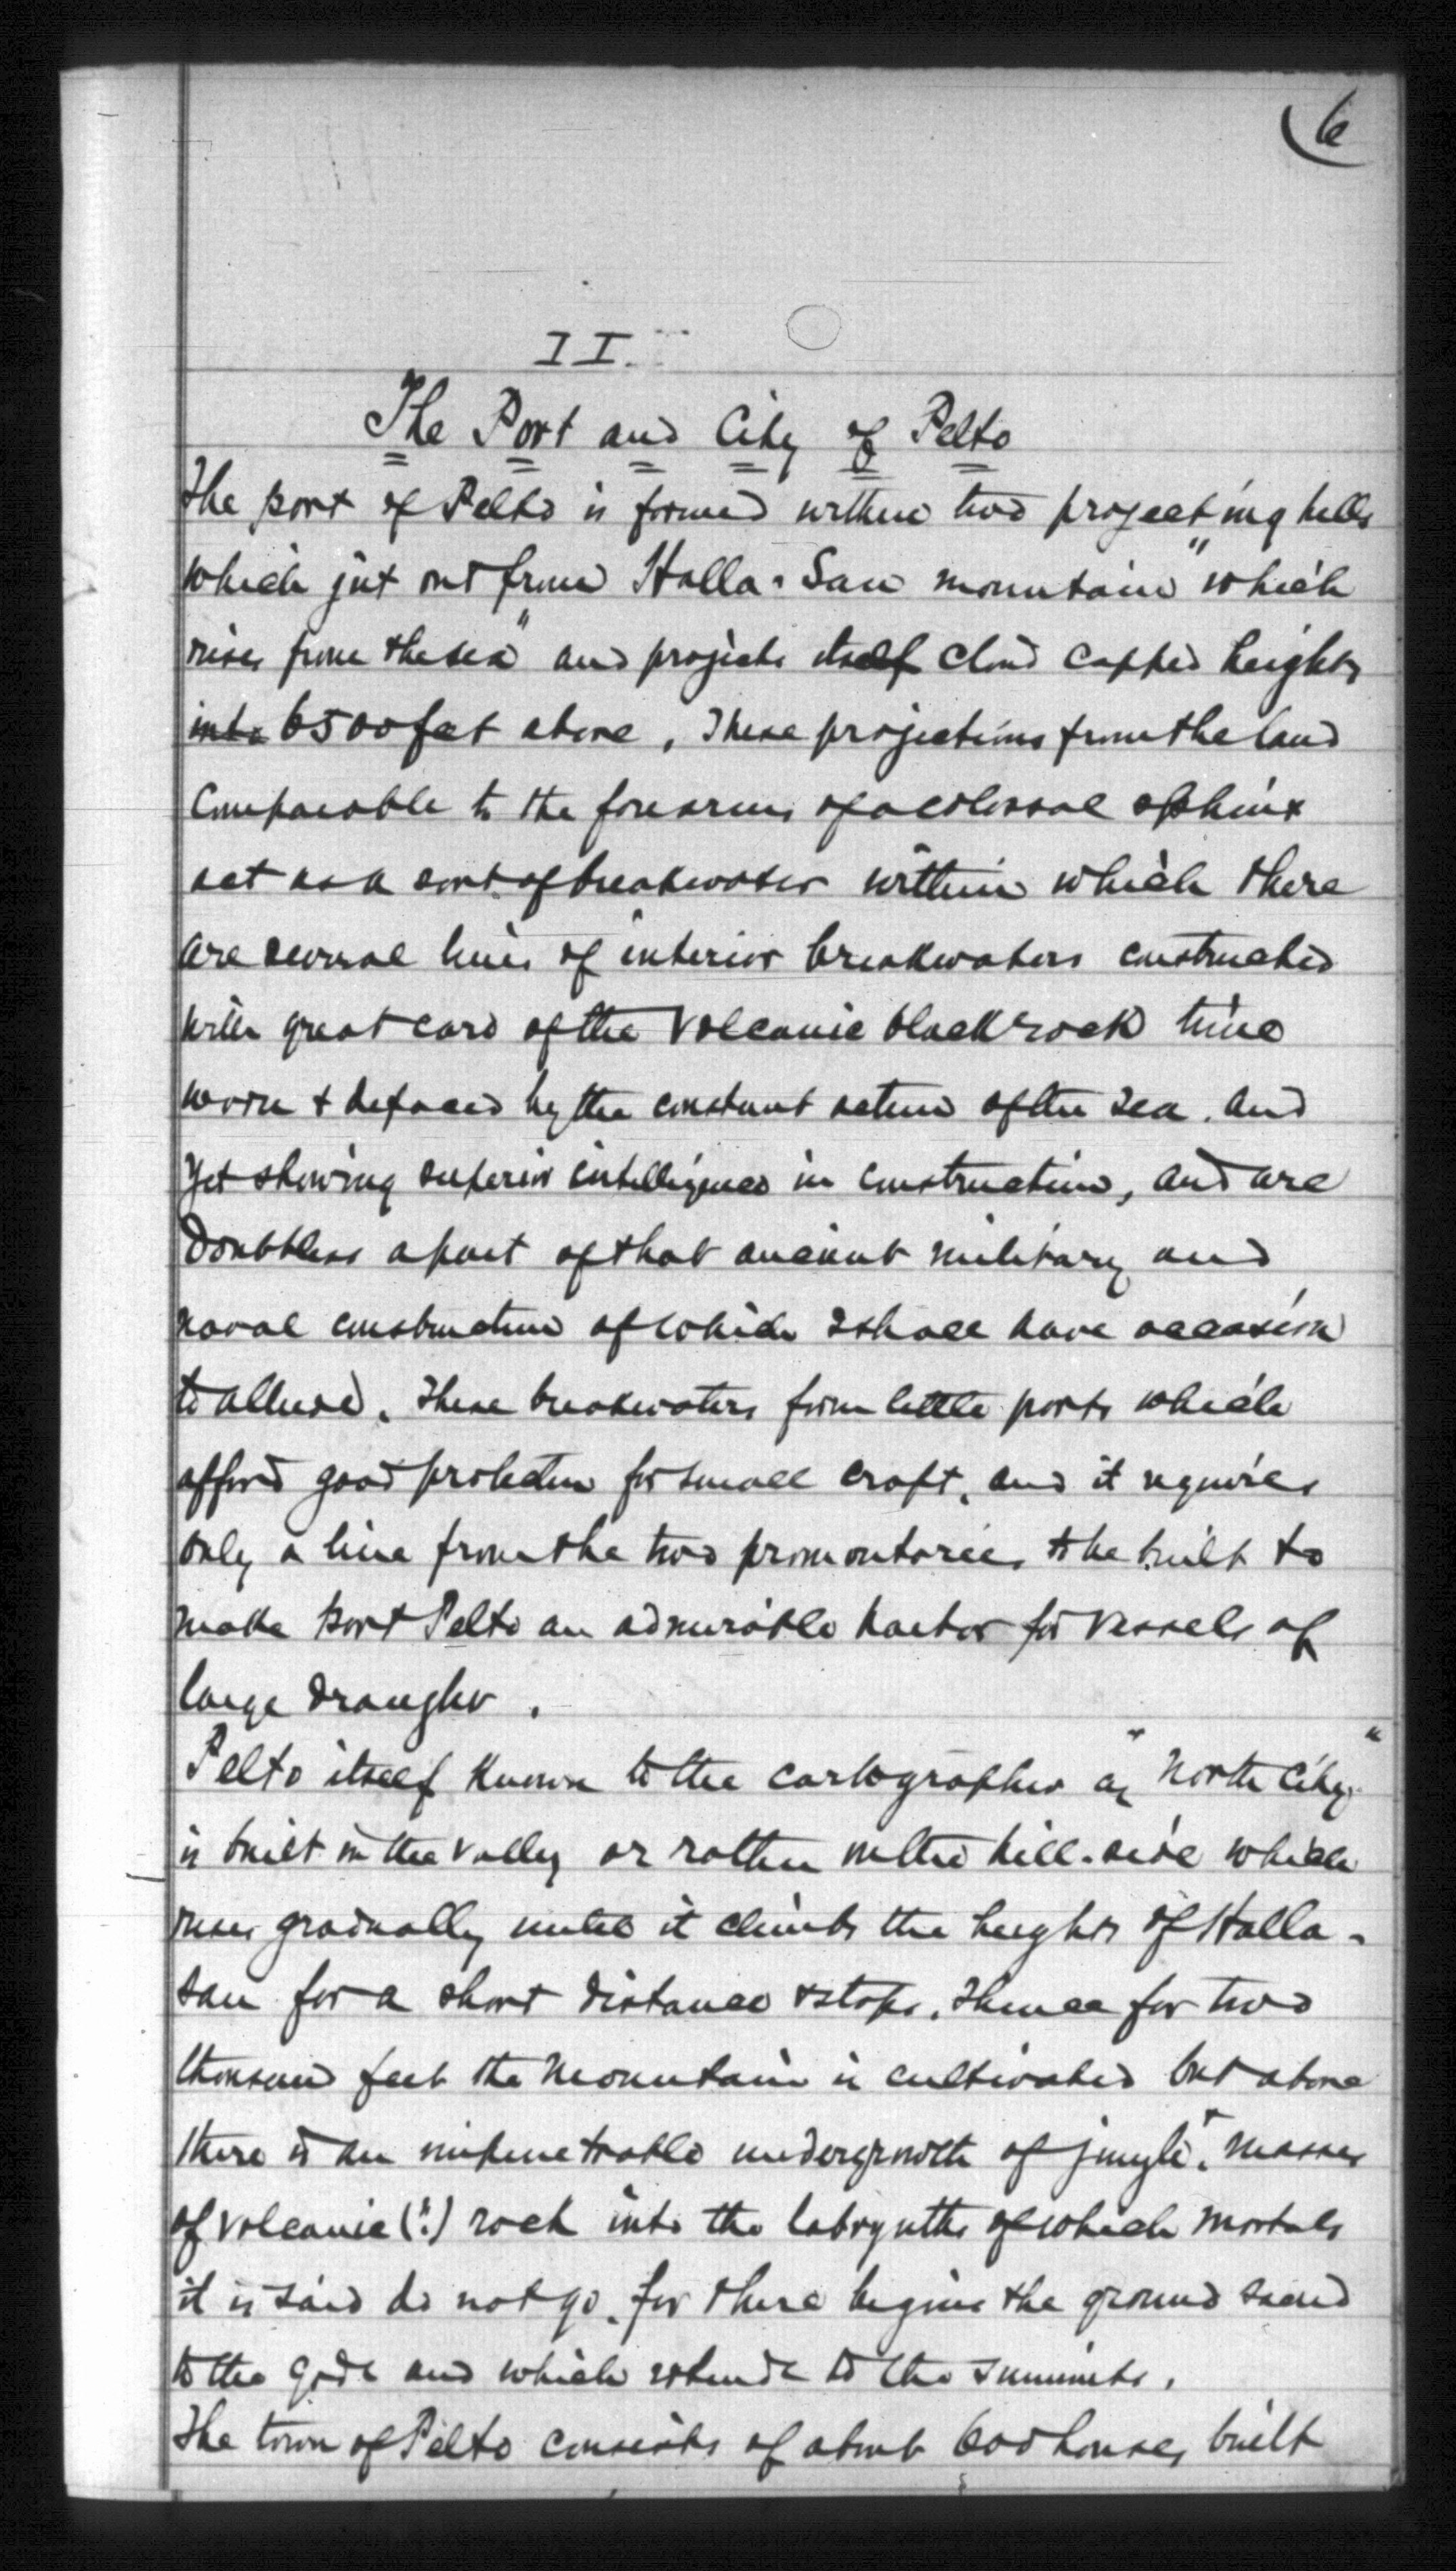 6
II.
The Port and City of Pelto
The port of Pelto is formed within two projecting hills
which jut out from Halla-San mountain "which
rises from the sea" and projects itself cloud capped heights
into 6500 feet above. These projections from the land
comparable to the forearms of a colossal sphinx
act as a sort of breakwater within which there
are several lines of interior breakwaters constructed
with great care of the volcanic black rock time
worn & defaced by the constant action of the sea. and
yet showing superior intelligence in construction, and are
doubtless a part of that ancient military and
naval construction of which I shall have occasion
to allude. These breakwaters form little ports which
afford good protection for small craft, and it requires
only a line from the two promontories to be built to
make port Pelto an admirable harbor for vessels of
large draught.
Pelto itself known to the cartographer as "North City"
is built in the valley or rather on the hill-side which
rises gradually until it climbs the heights of Halla-
san for a short distance & stops. Thence for two
thousand feet the mountain is cultivated but above
there is an impenetrable undergrowth of jungle & masses
of volcanic (?) rock into the labrynths of which mortals
it is said do not go. for there begins the ground sacred
to the gods and which extends to the summits.
The town of Pelto consists of about 600 houses built